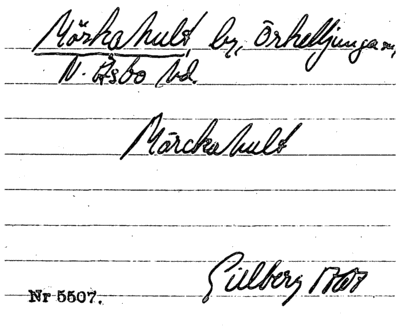 Mörkahult, by, Örkelljunga sn,
N. Åsbo hd.
Mörckahult
Gillberg
Nr 5507.